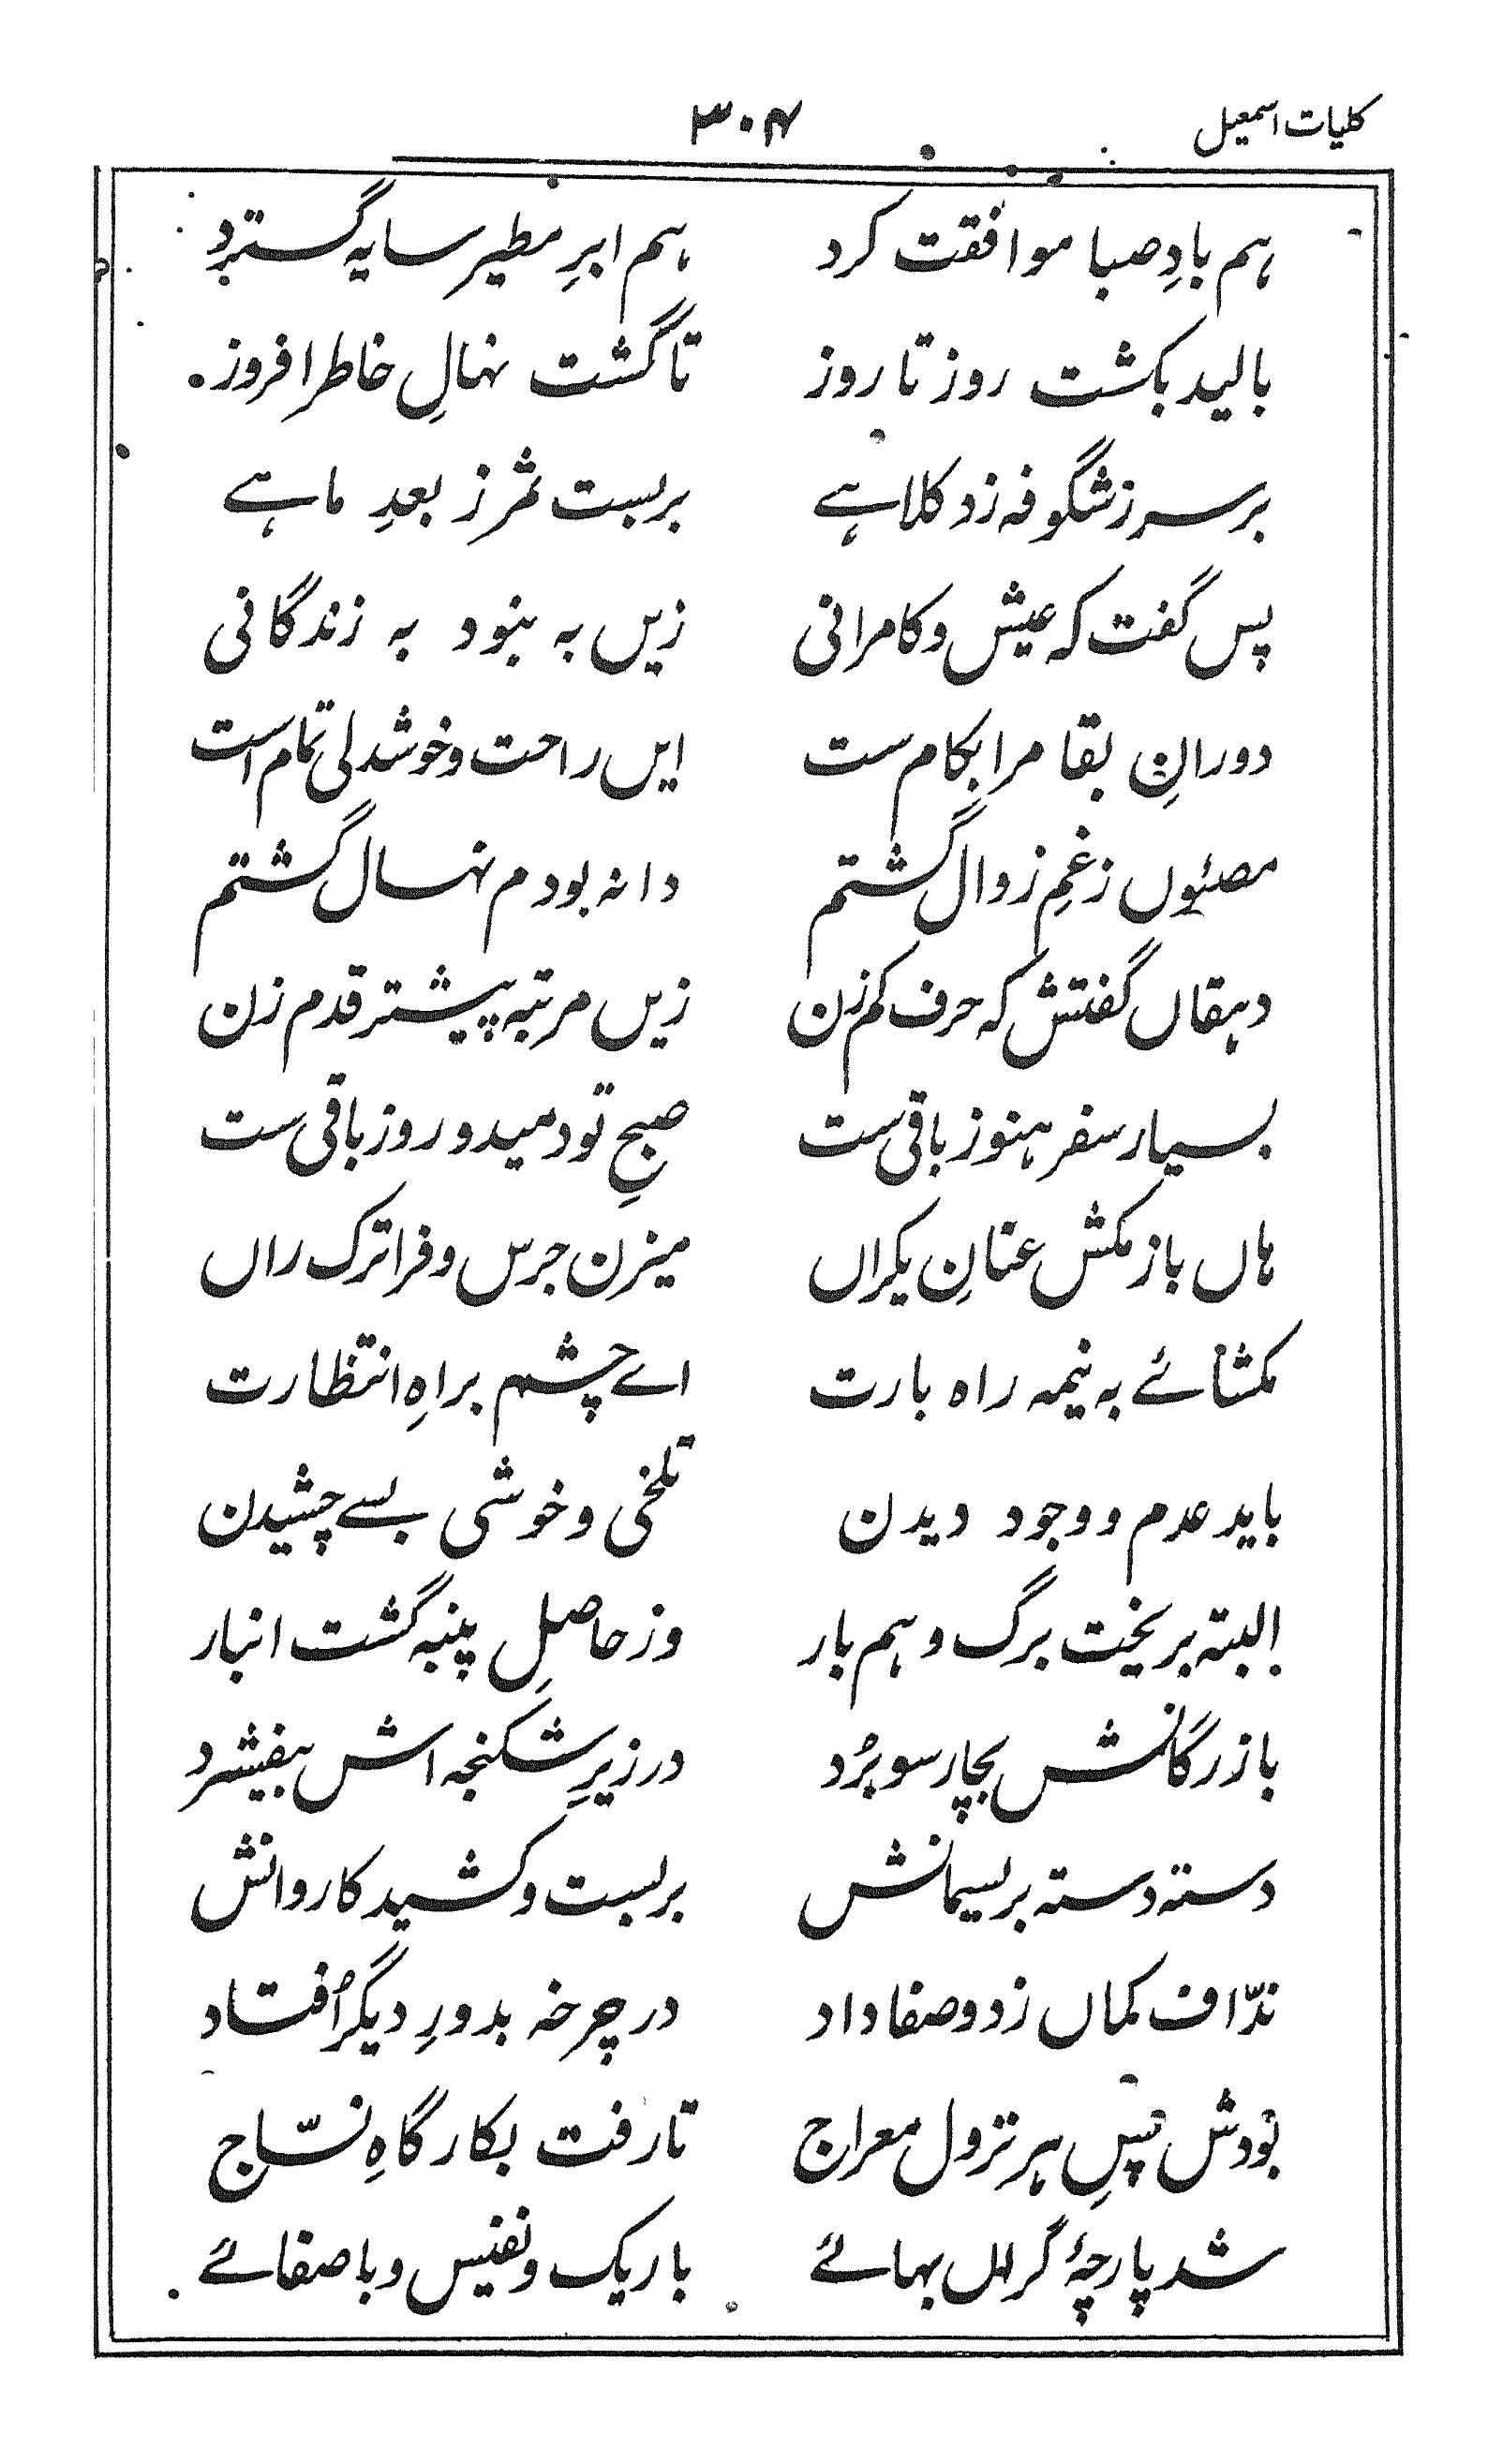 کلیات اسمعیل ۳۰۴
ہم بادِ صبا موافقت کرد ہم ابرِ مطیر سایہ گسترد
بالید بکشت روز تا روز تا گشت نہالِ خاطر افروز
بر سر ز شگوفہ زد کلاہے بربست ثمر ز بعدِ ماہے
پس گفت کہ عیش و کامرانی زیں بہ نبود بہ زندگانی
دورانِ بقا مرا بکام ست ایں راحت و خوشدلی تمام است
مصئوں ز غمِ زوال گشتم دانہ بودم نہال گشتم
دہقاں گفتش کہ حرف کم زن زیں مرتبہ پیشتر قدم زن
بسیار سفر ہنوز باقی ست صبحِ تو دمید و روز باقی ست
ہاں باز مکش عنانِ یکراں میزن جرس و فراترک راں
مکشائے بہ نیمہ راہ بارت اے چشم براہِ انتظارت
باید عدم و وجود دیدن تلخی و خوشی بسے چشیدن
البتہ بریخت برگ و ہم بار وز حاصلِ پنبہ گشت انبار
بازرگانش بچار سو بُرد در زیرِ شکنجہ اش بیفشرد
دستہ دستہ بریسمانش بربست و کشید کاروانش
ندّاف کماں زد و صفا داد در چرخہ بدورِ دیگر اُفتاد
بودش پسِ ہر نزول معراج تا رفت بکار گاہِ نسّاج
شد پارچۂ گراں بہائے باریک و نفیس و با صفائے